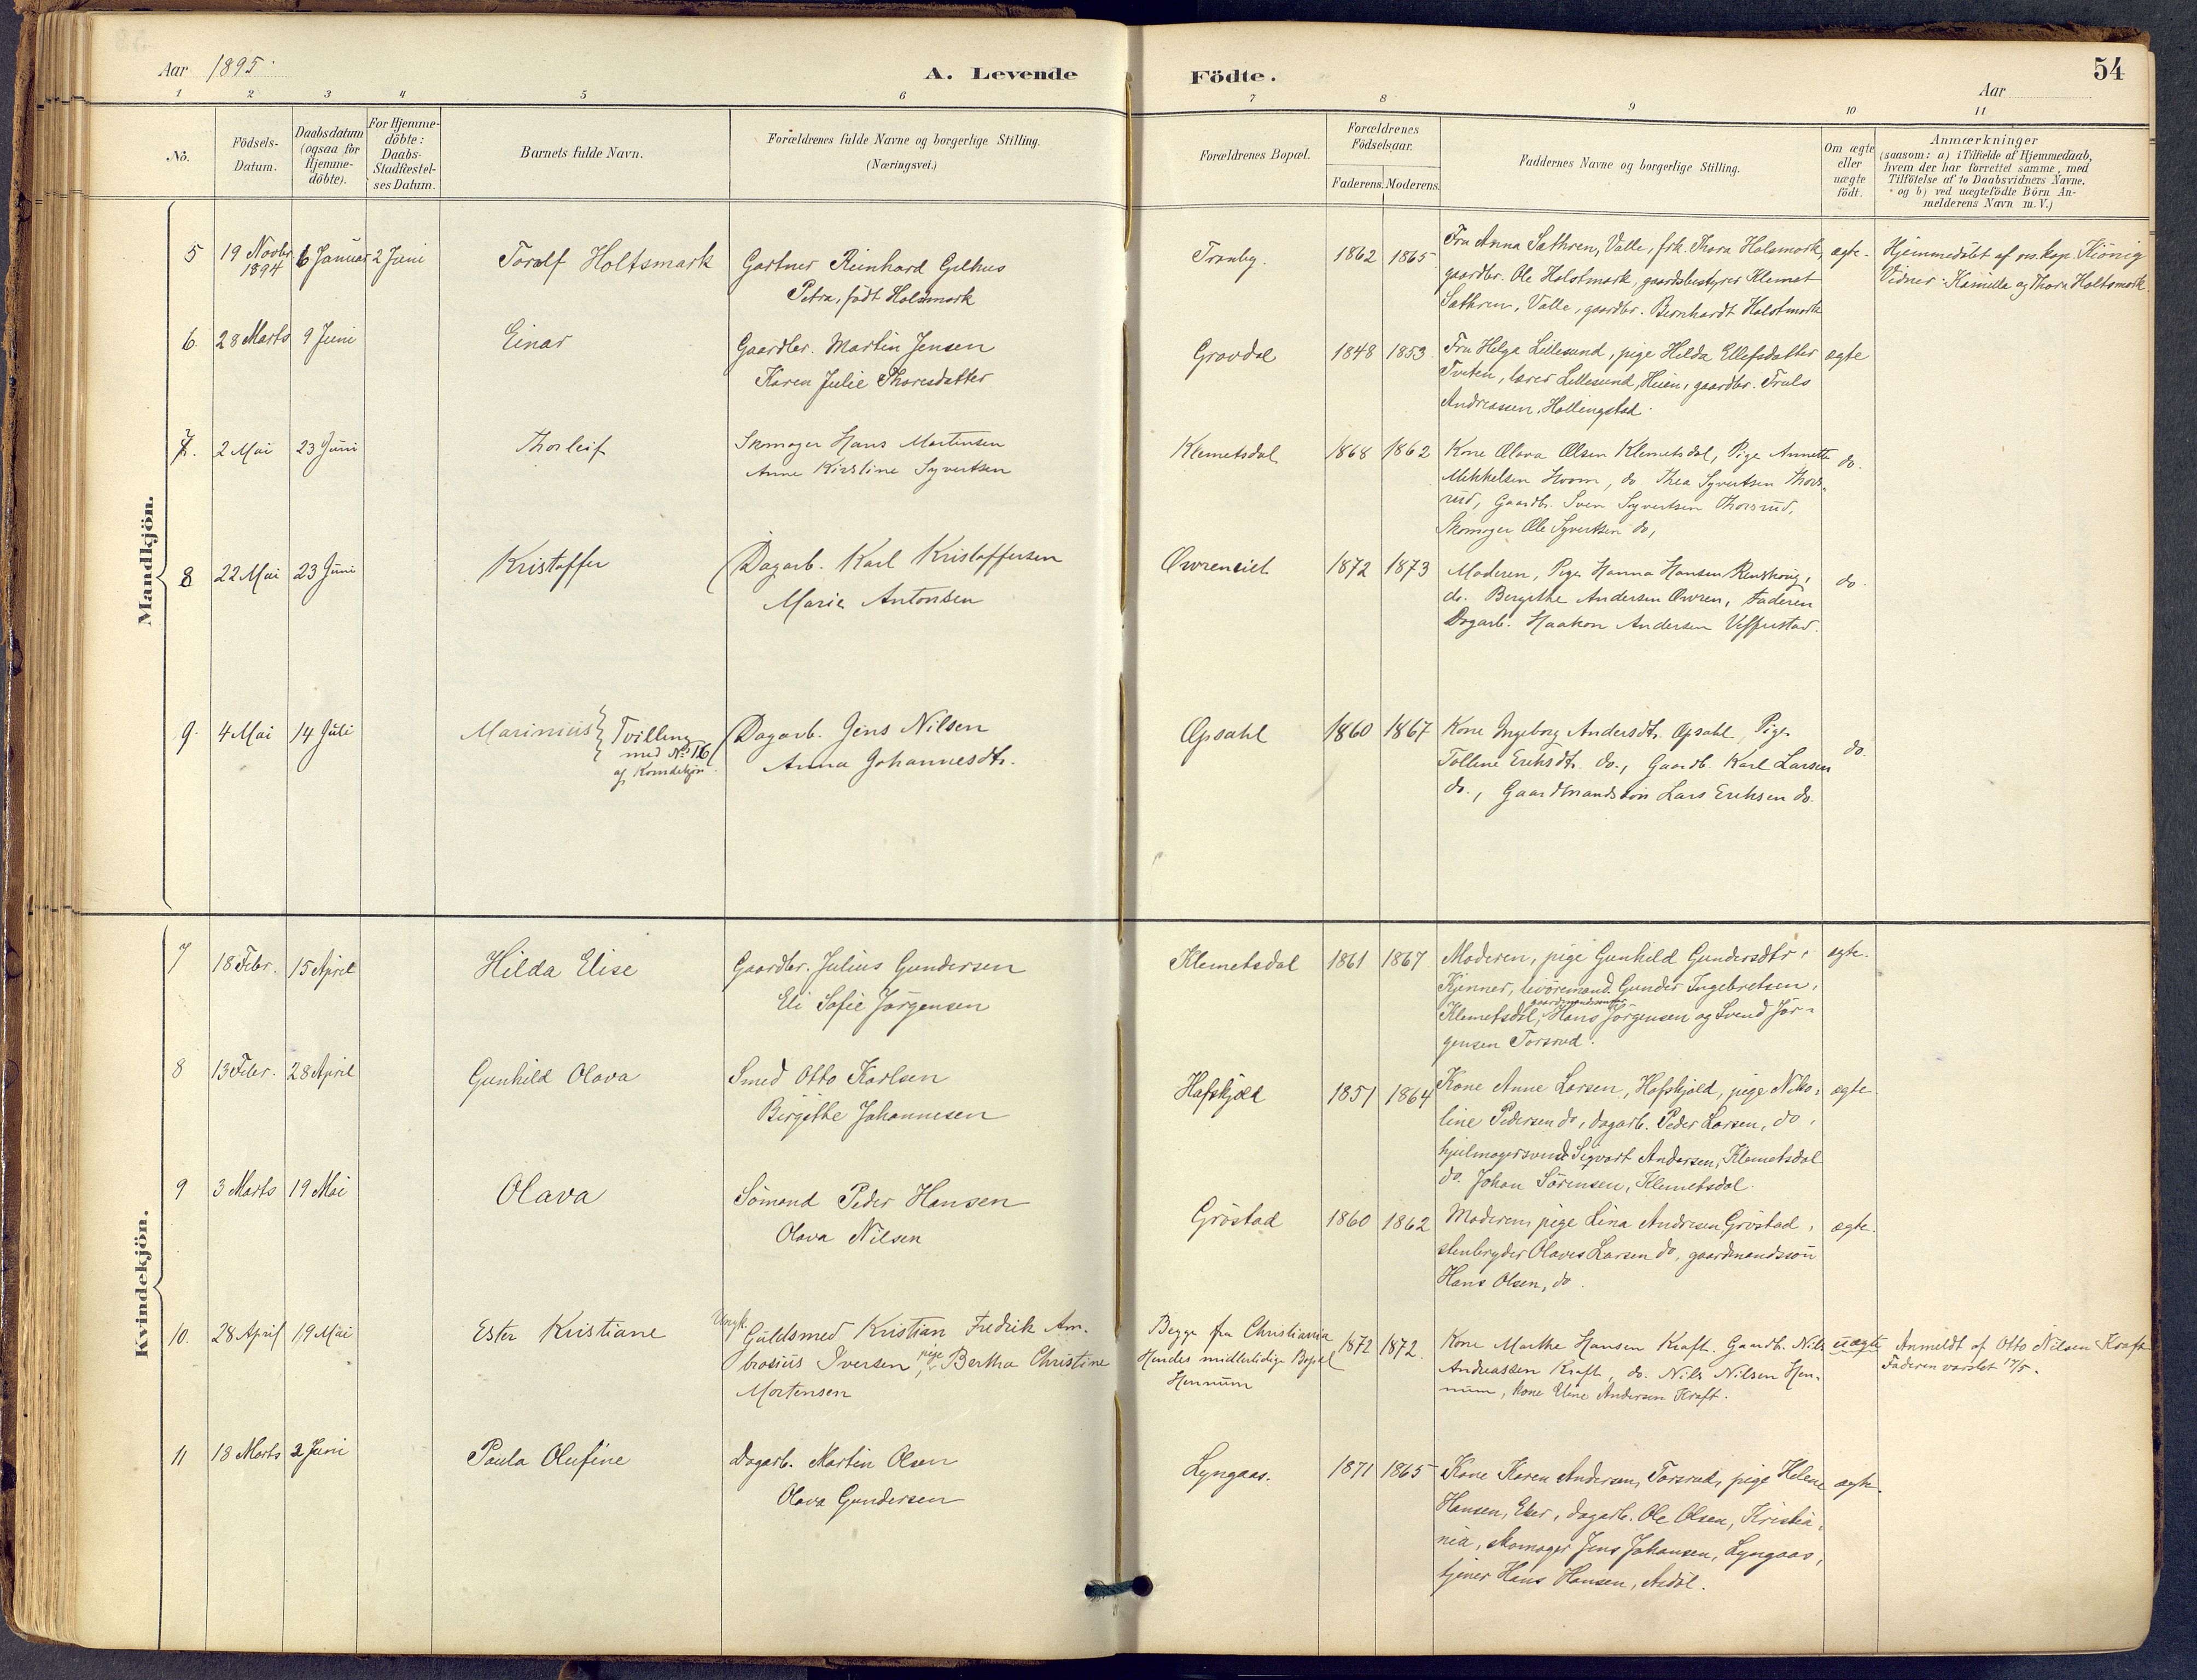 Aar 1895.
A. Levende Födte.
Aar
54
1 2 3 4 5 6 7 8 9 10 11
No.
Födsels-Datum.
Daabsdatum (ogsaa for Hjemme-döbte).
For Hjemme-döbte: Daabs-Stadfæstel-ses Datum.
Barnets fulde Navn.
Forældrenes fulde Navne og borgerlige Stilling. (Næringsvei.)
Forældrenes Bopæl.
Forældrenes Födselsaar.
Faderens. Moderens.
Faddernes Navne og borgerlige Stilling.
Om ægte eller uægte födt.
Anmærkninger
(saasom: a) i Tilfælde af Hjemmedaab,
hvem der har forrettet samme, med
Tilföielse af to Daabsvidners Navne.
og b) ved uægtefödte Börn An-
melderens Navn m.V.)
Mandkjön.
5 19 Novbr 1894 6 Januar 2 Juni Toralf Holtsmark
Gartner Reinhard Gilhus
Petra, född Holsmark
Tranby. 1862 1865
Fru Anna Sathren, Valle, frk. Thora Holsmark,
gaardbr. Ole Holstmark, gaardsbestyrer Klemet
Sathren, Valle, gaardbr. Bernhardt Holstmark
ægte.
Hjemmedöbt af res. kap. Kiönig
Vidner: Kamilla og Thora Holtsmark.
6. 28 Marts 9 Juni Einar
Gaardbr. Martin Jensen
Karen Julie Thoresdatter
Gravdal 1848 1853
Fru Helga Lillesund, pige Hilda Ellefsdatter
Tveten, lærer Lillesund, Heien, gaardbr. Truls
Andreassen, Hallingstad.
ægte
7. 2 Mai 23 Juni Thorleif
Skomager Hans Martinsen
Anne Kirstine Syvertsen
Klemetsdal 1868 1862
Kone Olava Olsen Klemetsdal, Pige Annette
Mikkelsen Hvom, do Thea Syvertsen Thors-
rud, Gaardbr. Sven Syvertsen Thorsrud,
Skomager Ole Syvertsen do,
do.
8 22 Mai 23 Juni Kristoffer
Dagarb. Karl Kristoffersen
Marie Antonsen
Øvreneiet 1872 1873
Moderen, Pige Hanna Hansen Renskoug,
do. Bergithe Andersen Øvren, Faderen
Dagarb. Haakon Andersen Veffrustad.
do.
9. 4 Mai 14 Juli Marinius Tvilling
med No 16
af Kvindekjön.
Dagarb. Jens Nilsen
Anna Johannesdtr.
Opsahl 1860 1867
Kone Ingeborg Andersdtr. Opsahl, Pige
Tolline Eriksdtr. do., Gaardb. Karl Larsen
do., Gaardmandssön Lars Eriksen do.
do.
Kvindekjön.
7 18 Febr. 15 April Hilda Elise
Gaardbr. Julius Gundersen
Eli Sofie Jörgensen
Klemetsdal 1861 1867
Moderen, pige Gunhild Gundersdtr,
Kjenner, livöremand Gunder Ingebretsen,
Klemetsdal, gaardmandssønner Hans Jörgensen og Svend Jör-
gensen Torsrud.
ægte.
8 13 Febr. 28 April Gunhild Olava
Smed Otto Karlsen
Birgithe Johannesen
Hafskjöld 1851 1864
Kone Anne Larsen, Hafskjold, pige Niko-
line Pedersen do, dagarb. Peder Larsen, do,
hjulmagersvend Sigvart Andersen, Klemetsdal
do. Johan Sörensen, Klemetsdal.
ægte.
9 3 Marts 19 Mai Olava
Sömand Peder Hansen
Olava Nilsen
Gröstad 1860 1862
Moderen, pige Lina Andresen Gröstad,
stenbryder Olaves Larsen do, gaardmandssön
Hans Olsen, do.
ægte.
10. 28 April 19 Mai Ester Kristiane
Ungk. Guldsmed Kristian Fredrik Am-
brosius Iversen, pige Bertha Christine
Mortensen
Begge fra Christiania
Hendes midlertidige Bopæl
Hennum
1872 1872.
Kone Marthe Hansen Kraft. Gaardb. Nils
Andreassen Kraft, do. Nils Nilsen Hen-
num, kone Eline Andersen Kraft.
uægte
Anmeldt af Otto Nilsen Kraft
Faderen varslet 17/5.
11 18 Marts 2 Juni Paula Olufine
Dagarb. Martin Olsen
Olava Gundersen
Lyngaas. 1871 1865
Kone Karen Andersen, Torsrud, pige Helene
Hansen, Eker, dagarb. Ole Olsen, Kristia-
nia, skomager Jens Johansen, Lyngaas,
tjener Hans Hansen, Asdöl.
ægte.